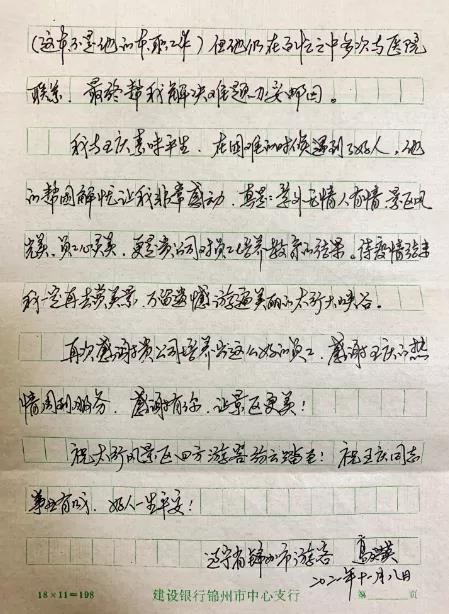 (这本不是他的本职工作)但他们在百忙之中多次与医院
联系，最终帮我解决难题办妥邮回。
我与王庆素昧平生，在困难的时候遇到了好人，他
的帮困解忧让我非常感动，真是:景外无情人有情景区风
光美，员工心灵美，更是贵公司对员工培养教育的结果。待疫情结束
我一定再去赏美景，不留遗憾游遍美丽的太行大峡谷。
再次感谢贵公司培养出这么好的员工，感谢王庆的热
情周到服务，感谢有你，让景区更美!
祝太行风景区四方游客纷至踏至!祝王庆同志
事业有成，好人一生平安!
辽宁省锦州市游客 高
二〇二一年十一月八日
18×11=198 建设银行锦州市中心支行 第 页